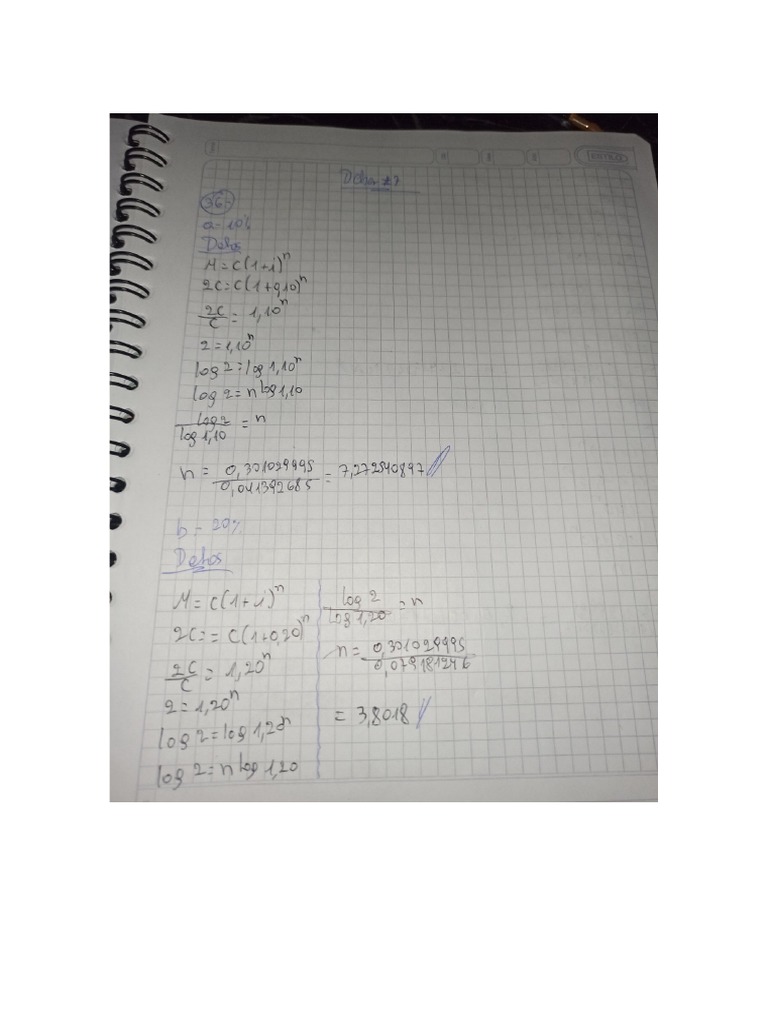 Deber #7
36-
a- 10%
Datos
M = C(1+i)^n
2C = C(1+0,10)^n
2C/C = 1,10^n
2 = 1,10^n
log 2 = log 1,10^n
log 2 = n log 1,10
log 2/log 1,10 = n
n = 0,301029995/0,041392685 = 7,272540897
b - 20%
Datos
M = C(1+i)^n
2C = = C(1+0,20)^n
2C/C = 1,20^n
2 = 1,20^n
log 2 = log 1,20^n
log 2 = n log 1,20
log 2/log 1,20 = n
n = 0,301029995/0,079181246
= 3,8018